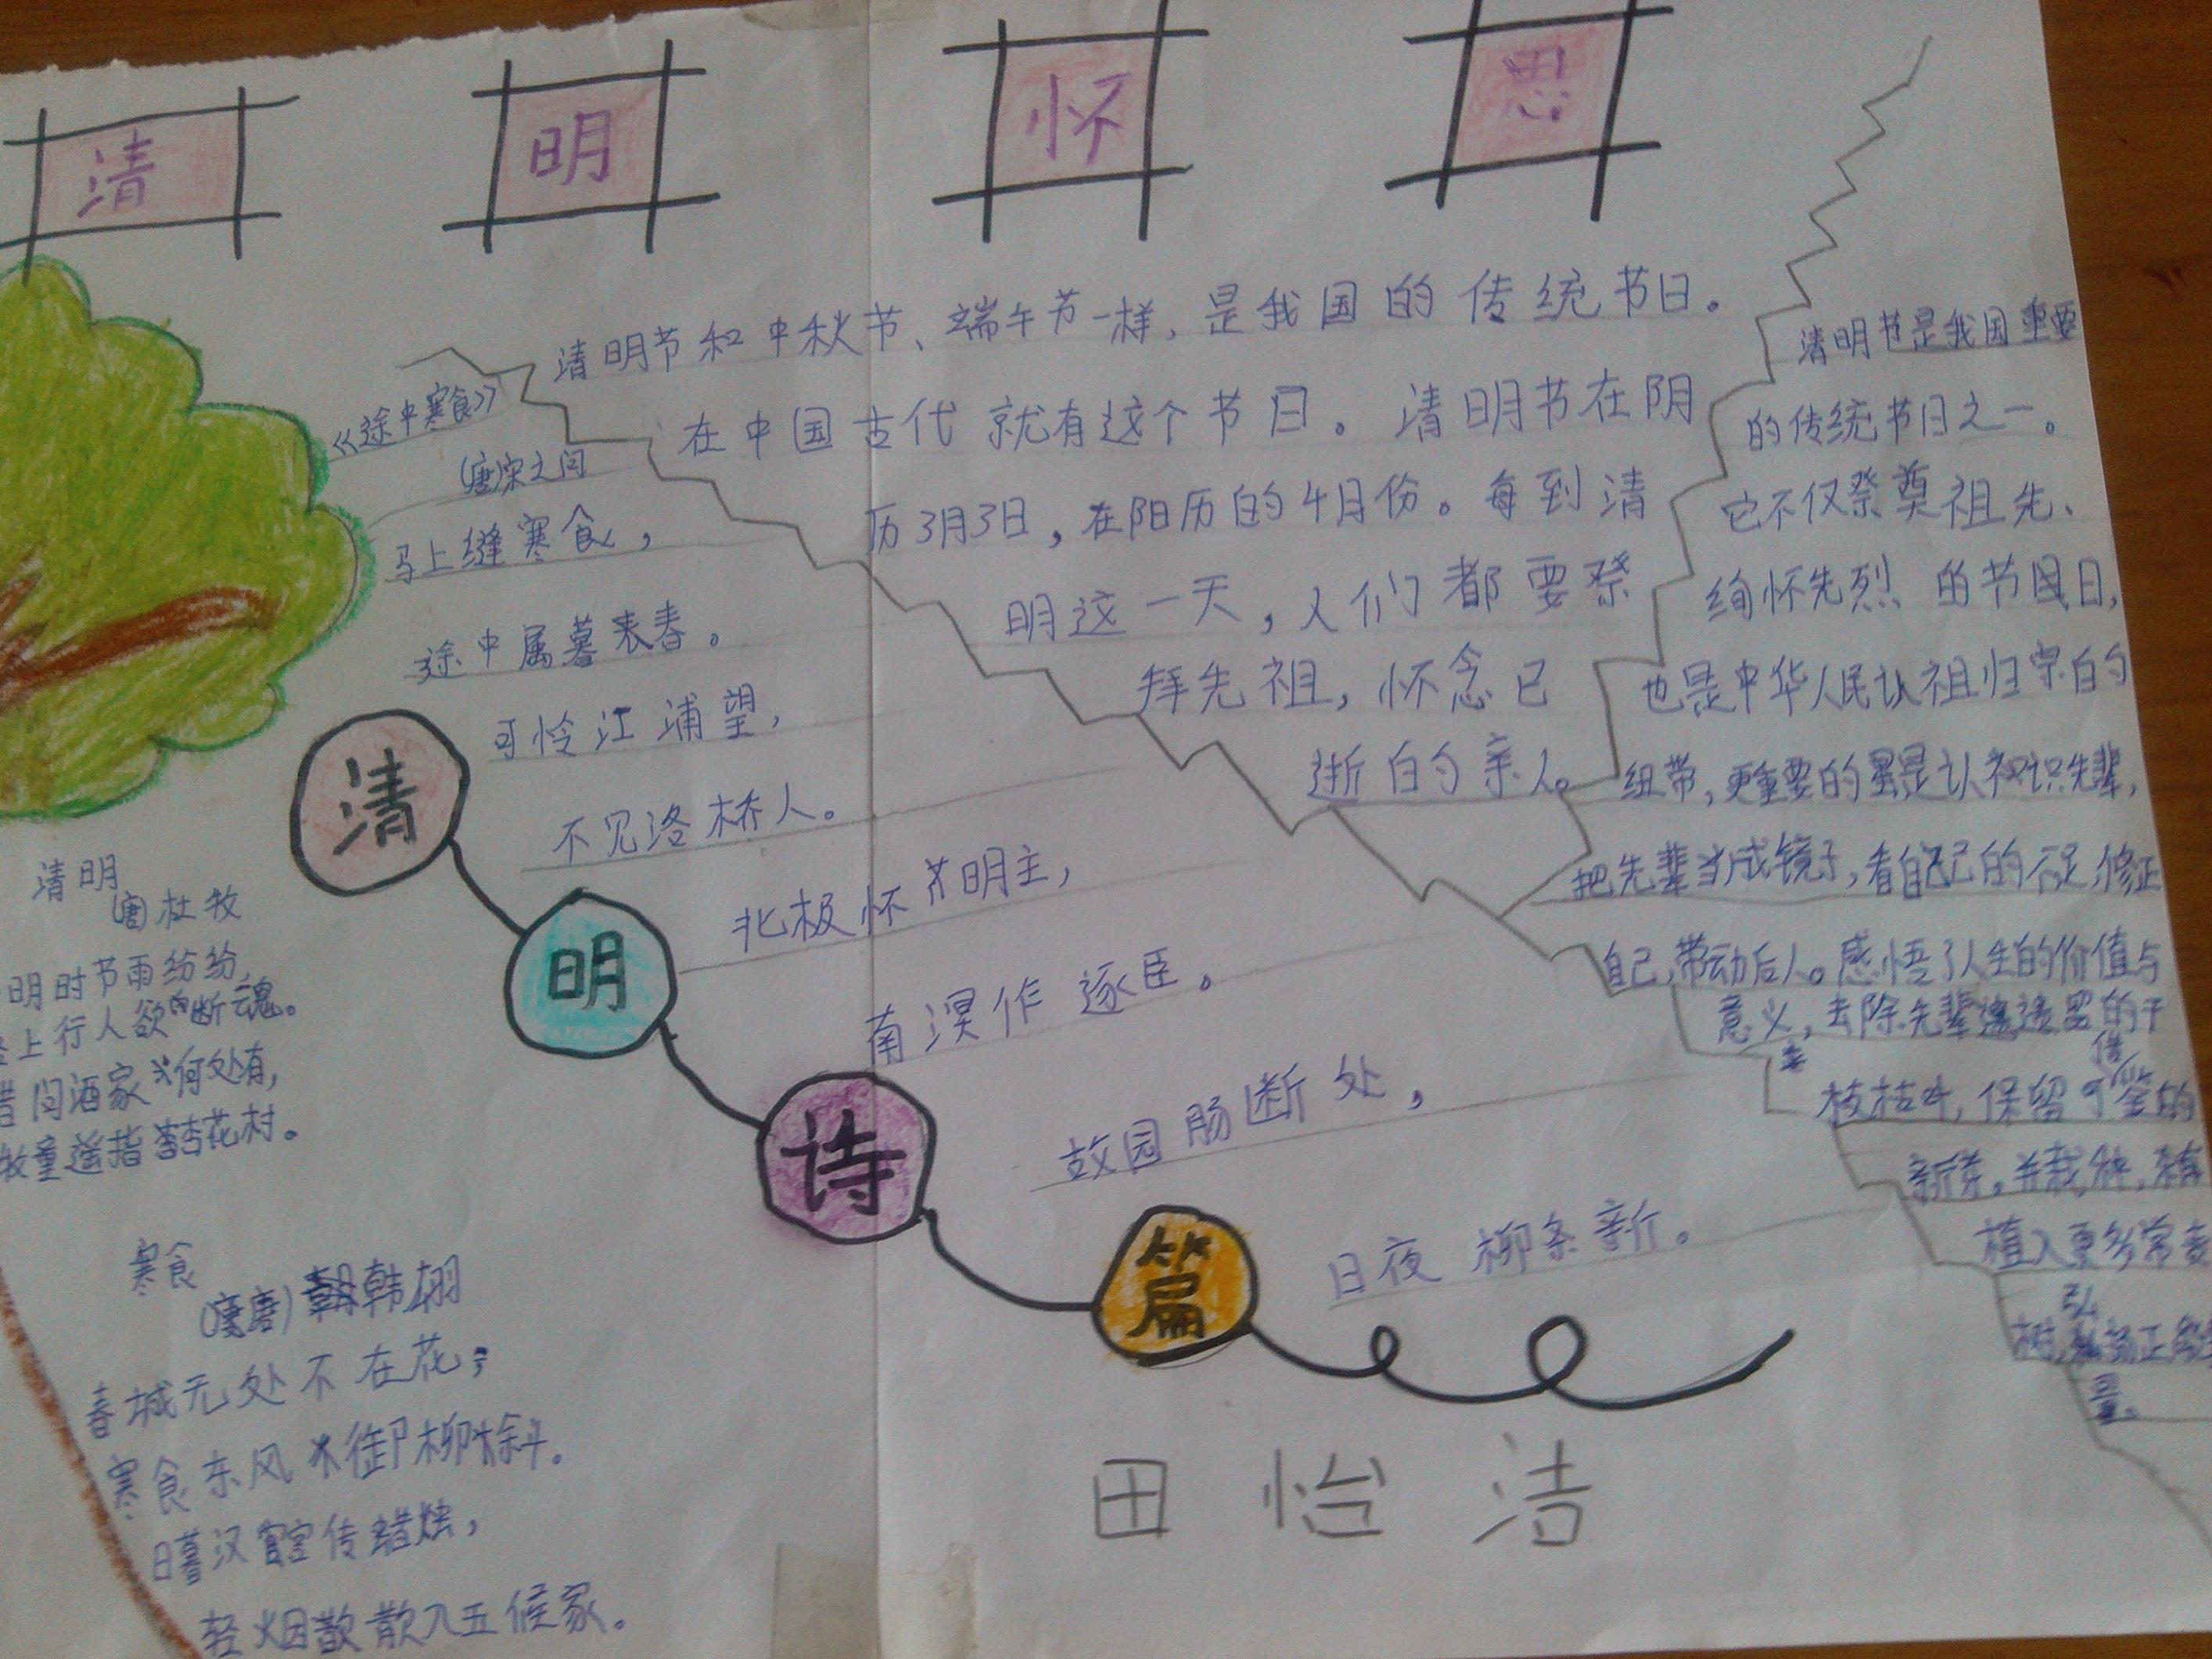 清 明 怀 思
清明节和中秋节、端午节一样,是我国的传统节日。
在中国古代就有这个节日。清明节在阴
历3月3日,在阳历的4月份。每到清
明这一天,人们都要祭
拜先祖,怀念已
逝的亲人。
清明节是我国重要
的传统节日之一。
它不仅祭奠祖先、
绚怀先烈的节日,
也是中华人民认祖归宗的
纽带,更重要的是认识先辈,
把先辈当成镜子,看自己的不足,修正
自己,带动后人。感悟了人生的价值与
意义,去除先辈遗留的干
枝枯叶,保留可借鉴的
新芽,并栽种,
植入更多常青
树,弘扬正能
量。
《途中寒食》
(唐)宋之问
马上缝寒食,
途中属暮春。
可怜江浦望,
不见洛桥人。
北极怀明主,
南溟作逐臣。
故园肠断处,
日夜柳条新。
清
明
诗
篇
清明
(唐)杜牧
明时节雨纷纷,
上行人欲断魂。
借问酒家何处有,
牧童遥指杏花村。
寒食
(唐)韩翃
春城无处不在花,
寒食东风御柳斜。
日暮汉宫传蜡烛,
轻烟散入五候家。
田怡洁